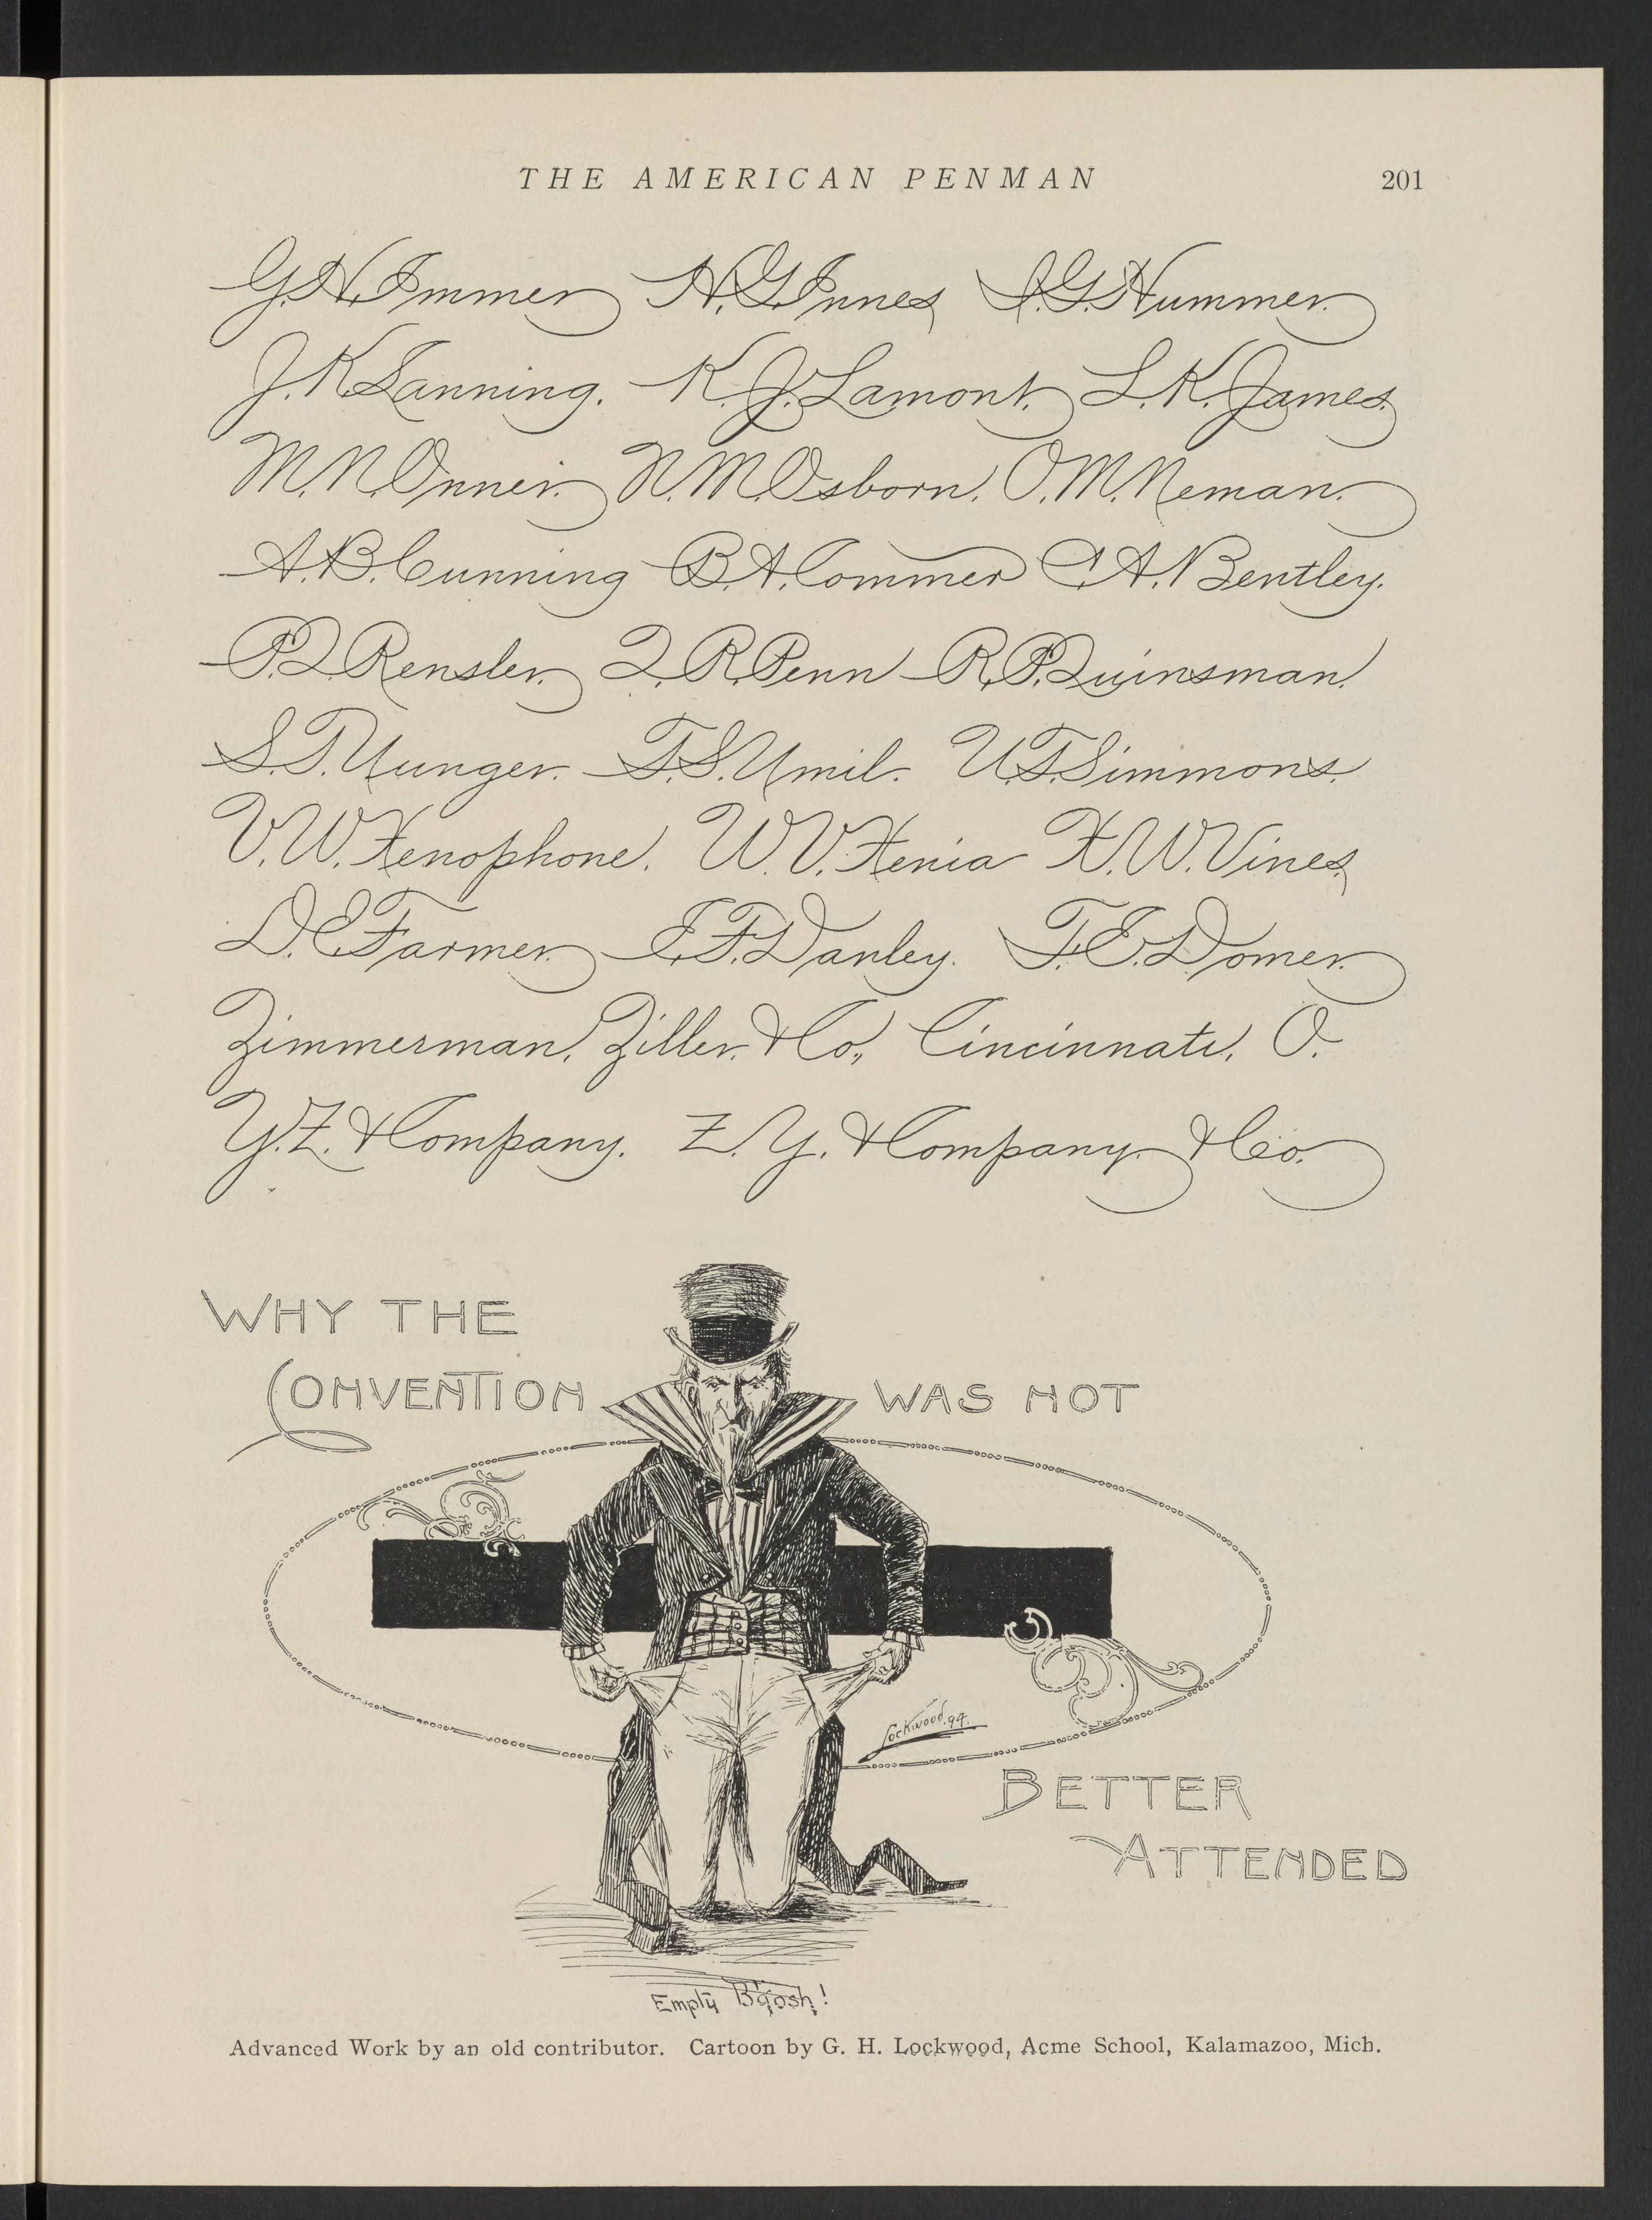 THE AMERICAN PENMAN 201
G.H. Immer H.G. Innes I.G. Hummer.
J.K. Lanning. K.J. Lamont. L.K. James.
M.N. Onner. N.M. Osborn. O.M. Neman.
A.B. Cunning B.A. Commer C.A. Bentley.
P.Q. Rensler. Q.R. Penn R.P. Quinsman.
S.T. Uunger. T.S. Umil. U.T. Simmons.
V.W. Xenophone. W.V. Xenia X.W. Vines
D.E. Farmer. E.F. Danley. F.E. Domer.
Zimmerman, Ziller & Co., Cincinnati, O.
Y.Z. & Company. Z.Y. & Company & Co.
WHY THE
CONVENTION WAS NOT
Lockwood. 94.
BETTER
ATTENDED
Empty B'gosh!
Advanced Work by an old contributor. Cartoon by G. H. Lockwood, Acme School, Kalamazoo, Mich.